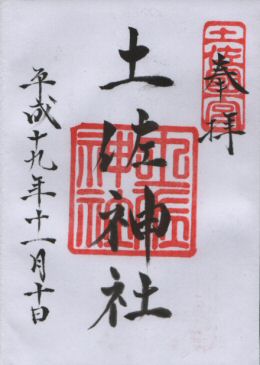 奉拝
土佐神社
平成十九年十一月十日
土佐神社